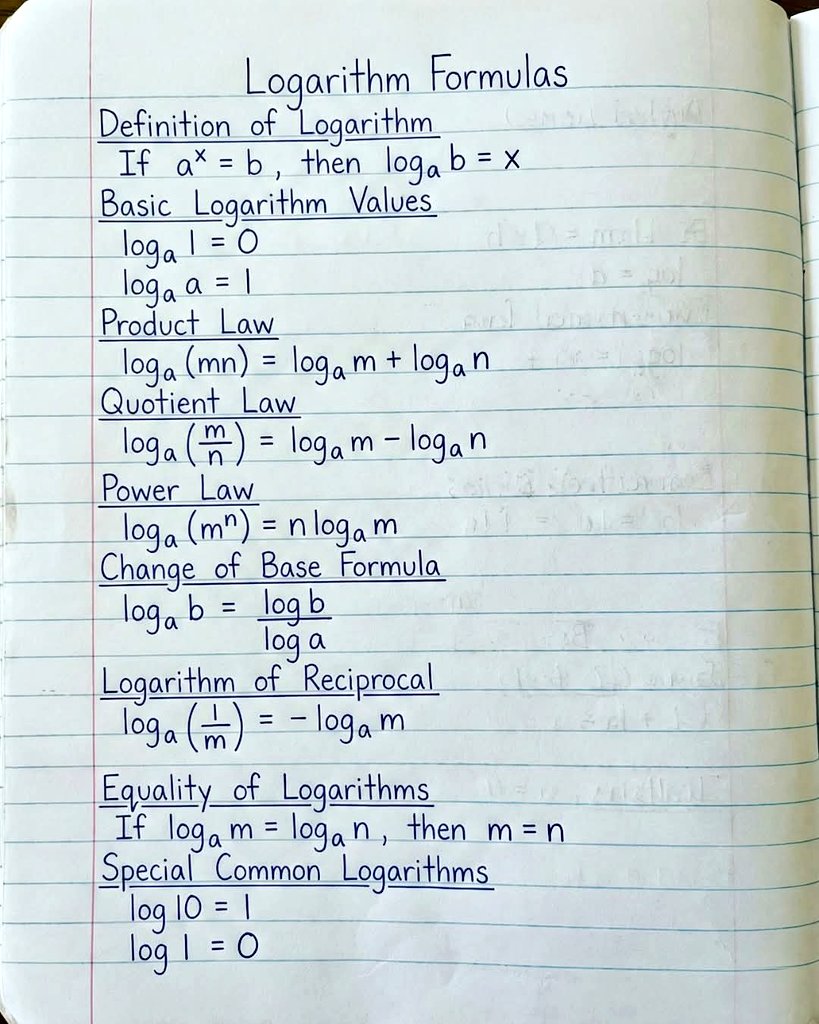 Logarithm Formulas
Definition of Logarithm
If aˣ = b, then logₐ b = x
Basic Logarithm Values
logₐ 1 = 0
logₐ a = 1
Product Law
logₐ (mn) = logₐ m + logₐ n
Quotient Law
logₐ (m/n) = logₐ m − logₐ n
Power Law
logₐ (mⁿ) = n logₐ m
Change of Base Formula
logₐ b = log b / log a
Logarithm of Reciprocal
logₐ (1/m) = − logₐ m
Equality of Logarithms
If logₐ m = logₐ n, then m = n
Special Common Logarithms
log 10 = 1
log 1 = 0